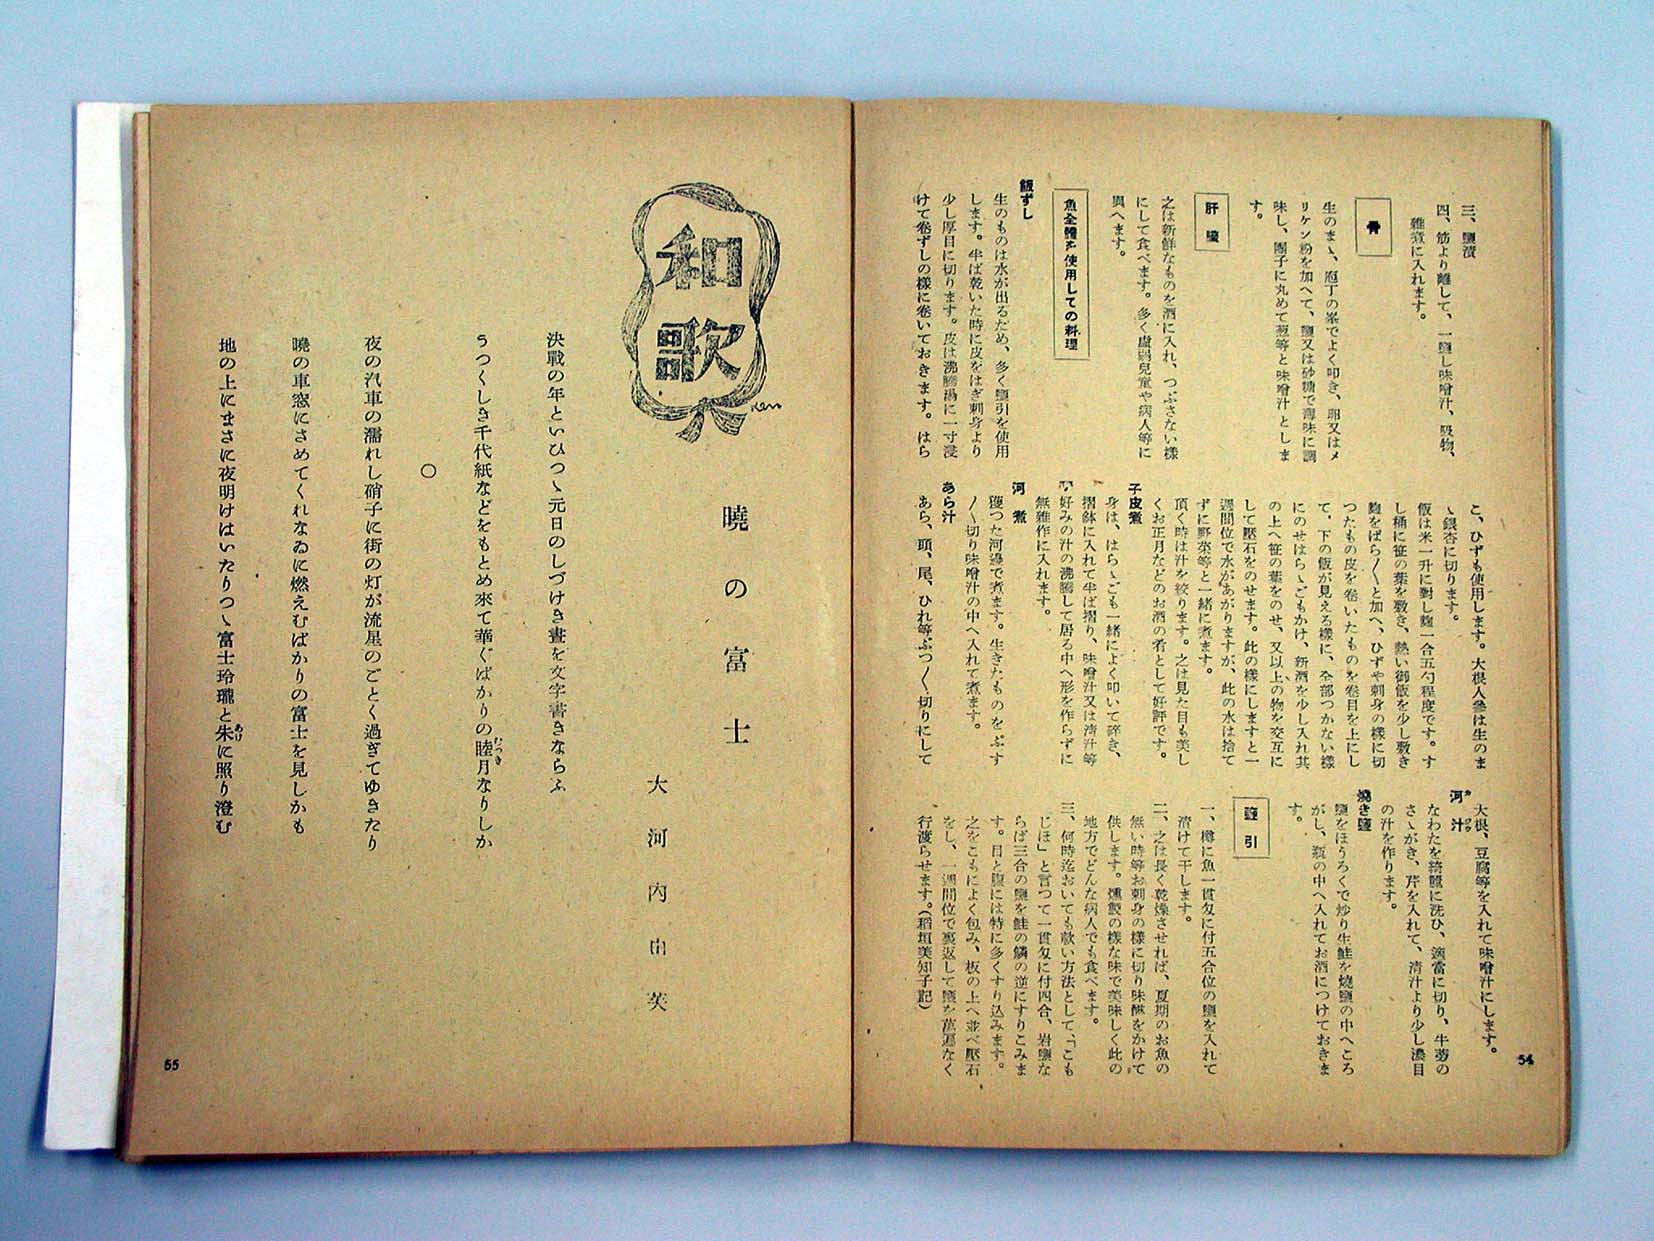 三、鹽漬
四、筋より離して、一鹽し味噌汁、吸物、
雜煮に入れます。
骨
生のまゝ、庖丁の峯でよく叩き、卵又はメ
リケン粉を加へて、鹽又は砂糖で薄味に調
味し、團子に丸めて葱等と味噌汁としま
す。
肝臓
之は新鮮なものを酒に入れ、つぶさない樣
にして食べます。多く虛弱兒童や病人等に
與へます。
魚全體を使用しての料理
飯ずし
生のものは水が出るため、多く鹽引を使用
します。半ば乾いた時に皮をはぎ刺身より
少し厚目に切ります。皮は沸騰湯に一寸浸
けて卷ずしの樣に卷いておきます。はら
こ、ひずも使用します。大根人參は生のま
ゝ銀杏に切ります。
飯は米一升に對し麴一合五勺程度です。す
し桶に笹の葉を敷き、熱い御飯を少し敷き
麴をばら〳〵と加へ、ひずや刺身の樣に切
つたもの皮を卷いたものを卷目を上にし
て、下の飯が見える樣に、全部つかない樣
にのせはらゝごもかけ、新酒を少し入れ其
の上へ笹の葉をのせ、又以上の物を交互に
して壓石をのせます。此の樣にしますと一
週間位で水があがりますが、此の水は捨て
ずに野菜等と一緒に煮ます。
頂く時は汁を絞ります。之は見た目も美し
くお正月などのお酒の肴として好評です。
子皮煮
身は、はらゝごも一緒によく叩いて碎き、
摺鉢に入れて半ば摺り、味噌汁又は淸汁等
好みの汁の沸騰して居る中へ形を作らずに
無雜作に入れます。
河煮
獲つた河邊で煮ます。生きたものをぶす
〳〵切り味噌汁の中へ入れて煮ます。
あら汁
あら、頭、尾、ひれ等ぶつ〳〵切りにして
大根、豆腐等を入れて味噌汁にします。
河汁
なわたを綺麗に洗ひ、適當に切り、牛蒡の
さゝがき、芹を入れて、淸汁より少し濃目
の汁を作ります。
燒き鹽
鹽をほうろくで炒り生鮭を燒鹽の中へころ
がし、瓶の中へ入れてお酒につけておきま
す。
鹽引
一、樽に魚一貫匁に付五合位の鹽を入れて
漬けて干します。
二、之は長く乾燥させれば、夏期のお魚の
無い時等お刺身の樣に切り味醂をかけて
供します。燻製の樣な味で美味しく此の
地方でどんな病人でも食べます。
三、何時迄おいても軟い方法として、「こも
じほ」と言つて一貫匁に付四合、岩鹽な
らば三合の鹽を鮭の鱗の逆にすりこみま
す。目と腹には特に多くすり込みます。
之をこもによく包み、板の上へ並べ壓石
をし、一週間位で裏返して鹽を萬遍なく
行渡らせます。(稻垣美知子記)
54
和歌
Ken
曉の富士
大河內由芙
決戰の年といひつゝ元日のしづけき晝を文字書きならふ
うつくしき千代紙などをもとめ來て華ぐばかりの睦月なりしか
むつき
○
夜の汽車の濡れし硝子に街の灯が流星のごとく過ぎてゆきたり
曉の車窓にさめてくれなゐに燃えむばかりの富士を見しかも
地の上にまさに夜明けはいたりつゝ富士玲瓏と朱に照り澄む
あけ
55